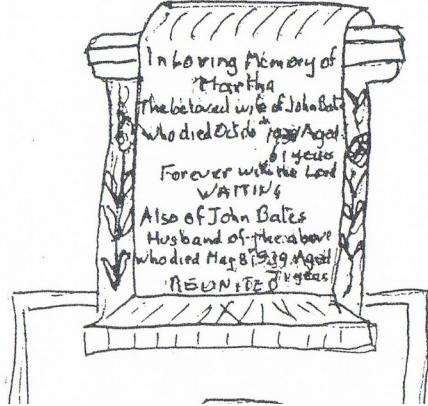 In Loving Memory of
Martha
The beloved wife of John Bates
who died Oct 16th Aged
61 years
Forever with the Lord
WAITING
Also of John Bates
Husband of the above
who died May 8th 1939 Aged
years
REUNITED